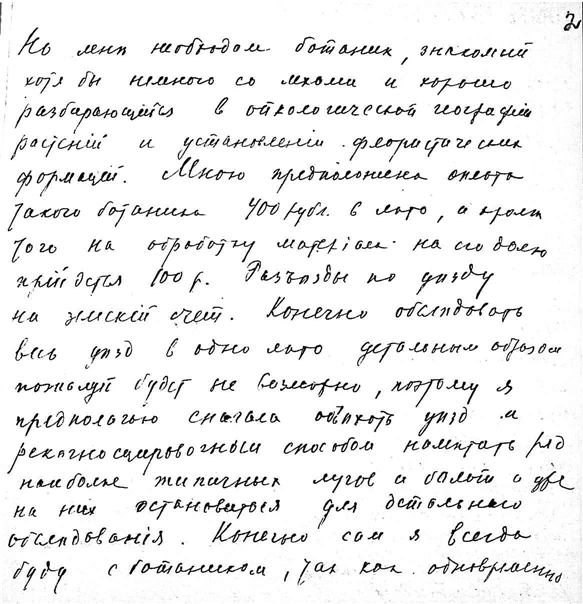 2
Но мнѣ необходим ботаник, знакомый
хотя бы немного со мхами и хорошо
разбирающийся в ойкологической географіи
растеній и установленіи флористических
формацій. Мною предположена оплата
такого ботаника 400 рубл. в лѣто, а кромѣ
того на обработку матеріала на его долю
прийдется 100 р. Разъѣзды по уѣзду
на земскій счет. Конечно обслѣдовать
весь уѣзд в одно лѣто детальным образом
пожалуй будет не возможно, поэтому я
предполагаю сначала объѣхать уѣзд и
рекогносцировочным способом намѣтить ряд
наиболѣе типичных лугов и болот и уже
на них остановиться для детальнаго
обслѣдованія. Конечно сам я всегда
буду с ботаником, так как одновременно